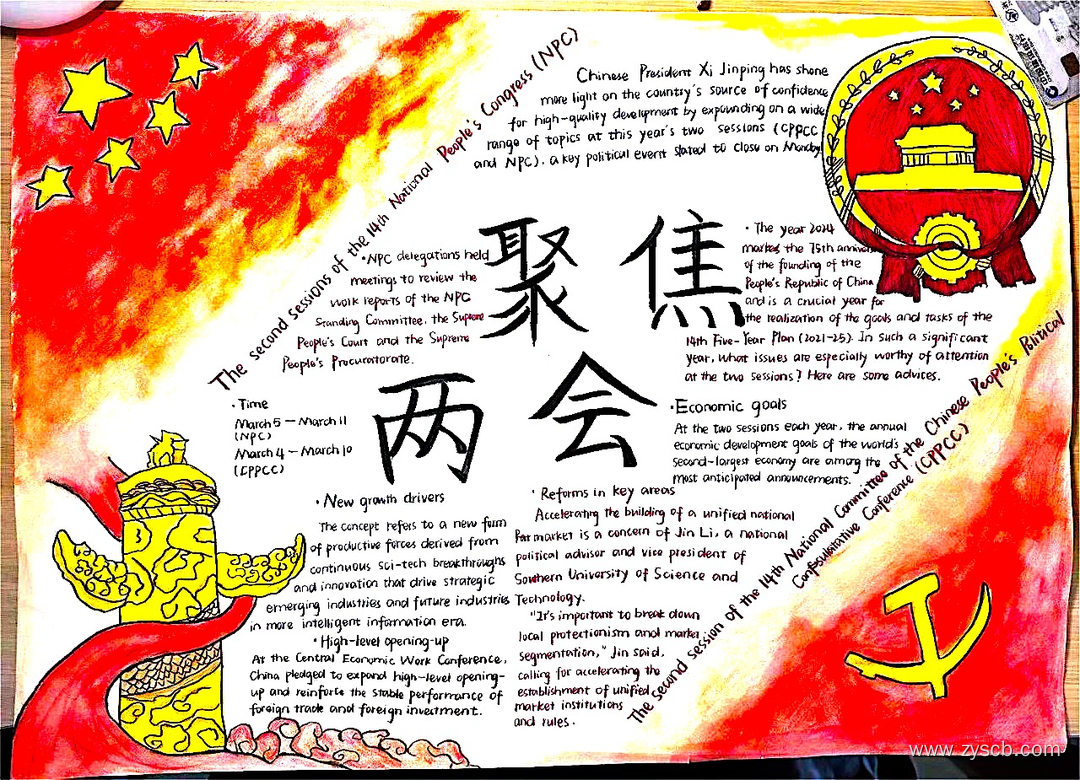 The second sessions of the 14th National People's Congress (NPC)
Chinese President Xi Jinping has shone
more light on the country's source of confidence
for high-quality development by expounding on a wide
range of topics at this year's two sessions (CPPCC
and NPC), a key political event slated to close on Monday
聚焦
两会
·NPC delegations held
meetings to review the
work reports of the NPC
Standing Committee, the Supreme
People's Court and the Supreme
People's Procuratorate.
· The year 2024
marks the 75th annivers
of the founding of the
People's Republic of China
and is a crucial year for
the realization of the goals and tasks of the
14th Five-Year Plan (2021-25). In such a significant
year, what issues are especially worthy of attention
at the two sessions? Here are some advices.
· Time
March 5 — March 11
(NPC)
March 4 — March 10
(CPPCC)
·Economic goals
At the two sessions each year, the annual
economic development goals of the world's
second-largest economy are among the
most anticipated announcements.
· New growth drivers
The concept refers to a new form
of productive forces derived from
continuous sci-tech breakthroughs
and innovation that drive strategic
emerging industries and future industries
in more intelligent information era.
· High-level opening-up
At the Central Economic Work Conference,
China pledged to expand high-level opening-
up and reinforce the stable performance of
foreign trade and foreign investment.
· Reforms in key areas
Accelerating the building of a unified national
market is a concern of Jin Li, a national
political advisor and vice president of
Southern University of Science and
Technology.
"It's important to break down
local protectionism and market
segmentation," Jin said,
calling for accelerating the
establishment of unified
market institutions
and rules.
The second session of the 14th National Committee of the Chinese People's Political
Consultative Conference (CPPCC)
www.zyscb.com